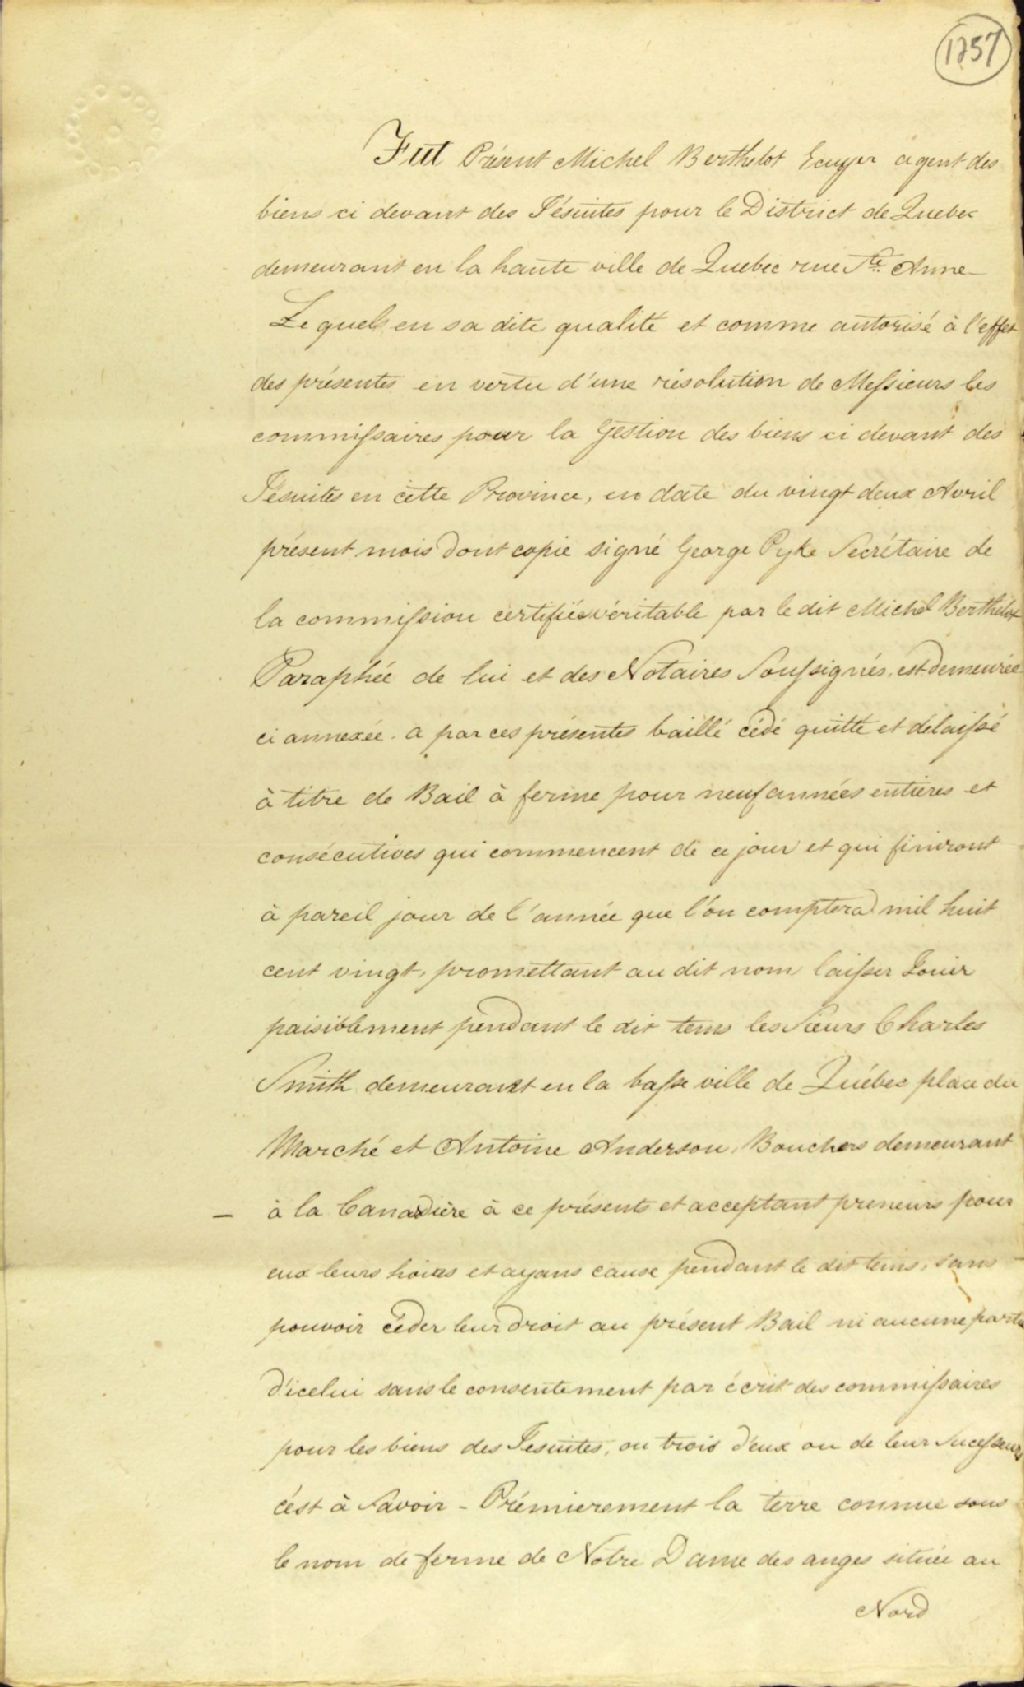 1757
Fut Présent Michel Berthelot Ecuyer agent des
biens ci devant des Jésuites pour le District de Quebec
demeurant en la haute ville de Quebec rue Ste. Anne
Lequel en sa dite qualité et comme autorisé à l'effet
des présentes en vertu d'une résolution de Messieurs les
commissaires pour la Gestion des biens ci devant des
Jésuites en cette Province, en date du vingt deux Avril
présent mois dont copie signé George Pyke Secrétaire de
la commission certifiée véritable par le dit Michel Berthelot
Paraphée de lui et des Notaires Soussignés, est demeurée
ci annexée. a par ces présentes baillé cédé quitté et délaissé
à titre de Bail à ferme pour neuf années entieres et
consécutives qui commencent de ce jour et qui finiront
à pareil jour de l'année que l'on comptera mil huit
cent vingt, promettant au dit nom laisser Jouir
paisiblement pendant le dit tems les Sieurs Charles
Smith demeurant en la basse ville de Québec place du
Marché et Antoine Anderson, Bouchers demeurant
– à la Canardière à ce présents et acceptant preneurs pour
eux leurs hoirs et ayans cause pendant le dit tems, sans
pouvoir céder leur droit au présent Bail ni aucune partie
d'icelui sans le consentement par écrit des commissaires
pour les biens des Jesuites, ou trois d'eux ou de leur Sucesseurs
c'ést à Savoir - Prémierement la terre connue sous
le nom de ferme de Notre Dame des anges située au
Nord